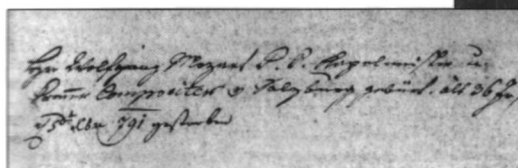 Hr Wolfgang Mozart K. K. Kapelmeister u.
Kam̄er Compositer v Salzburg gebürt. alt 36 Ja
5t xbr 791 gestorben